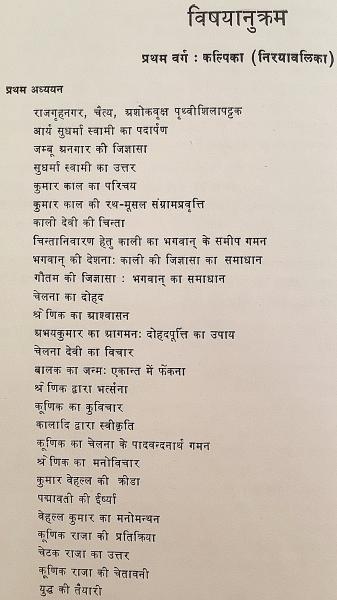 विषयानुक्रम
प्रथम वर्ग : कल्पिका (निरयावलिका)
प्रथम अध्ययन
राजगृहनगर, चैत्य, अशोकवृक्ष पृथ्वीशिलापट्टक
आर्य सुधर्मा स्वामी का पदार्पण
जम्बू अनगार की जिज्ञासा
सुधर्मा स्वामी का उत्तर
कुमार काल का परिचय
कुमार काल की रथ-मूसल संग्रामप्रवृत्ति
काली देवी की चिन्ता
चिन्तानिवारण हेतु काली का भगवान् के समीप गमन
भगवान् की देशना: काली की जिज्ञासा का समाधान
गौतम की जिज्ञासा : भगवान् का समाधान
चेलना का दोहद
श्रेणिक का आश्वासन
अभयकुमार का आगमन: दोहदपूर्त्ति का उपाय
चेलना देवी का विचार
बालक का जन्म: एकान्त में फेंकना
श्रेणिक द्वारा भर्त्सना
कूणिक का कुविचार
कालादि द्वारा स्वीकृति
कूणिक का चेलना के पादवन्दनार्थ गमन
श्रेणिक का मनोविचार
कुमार वेहल्ल की क्रीडा
पद्मावती की ईर्ष्या
वेहल्ल कुमार का मनोमन्थन
कूणिक राजा की प्रतिक्रिया
चेटक राजा का उत्तर
कूणिक राजा की चेतावनी
युद्ध की तैयारी